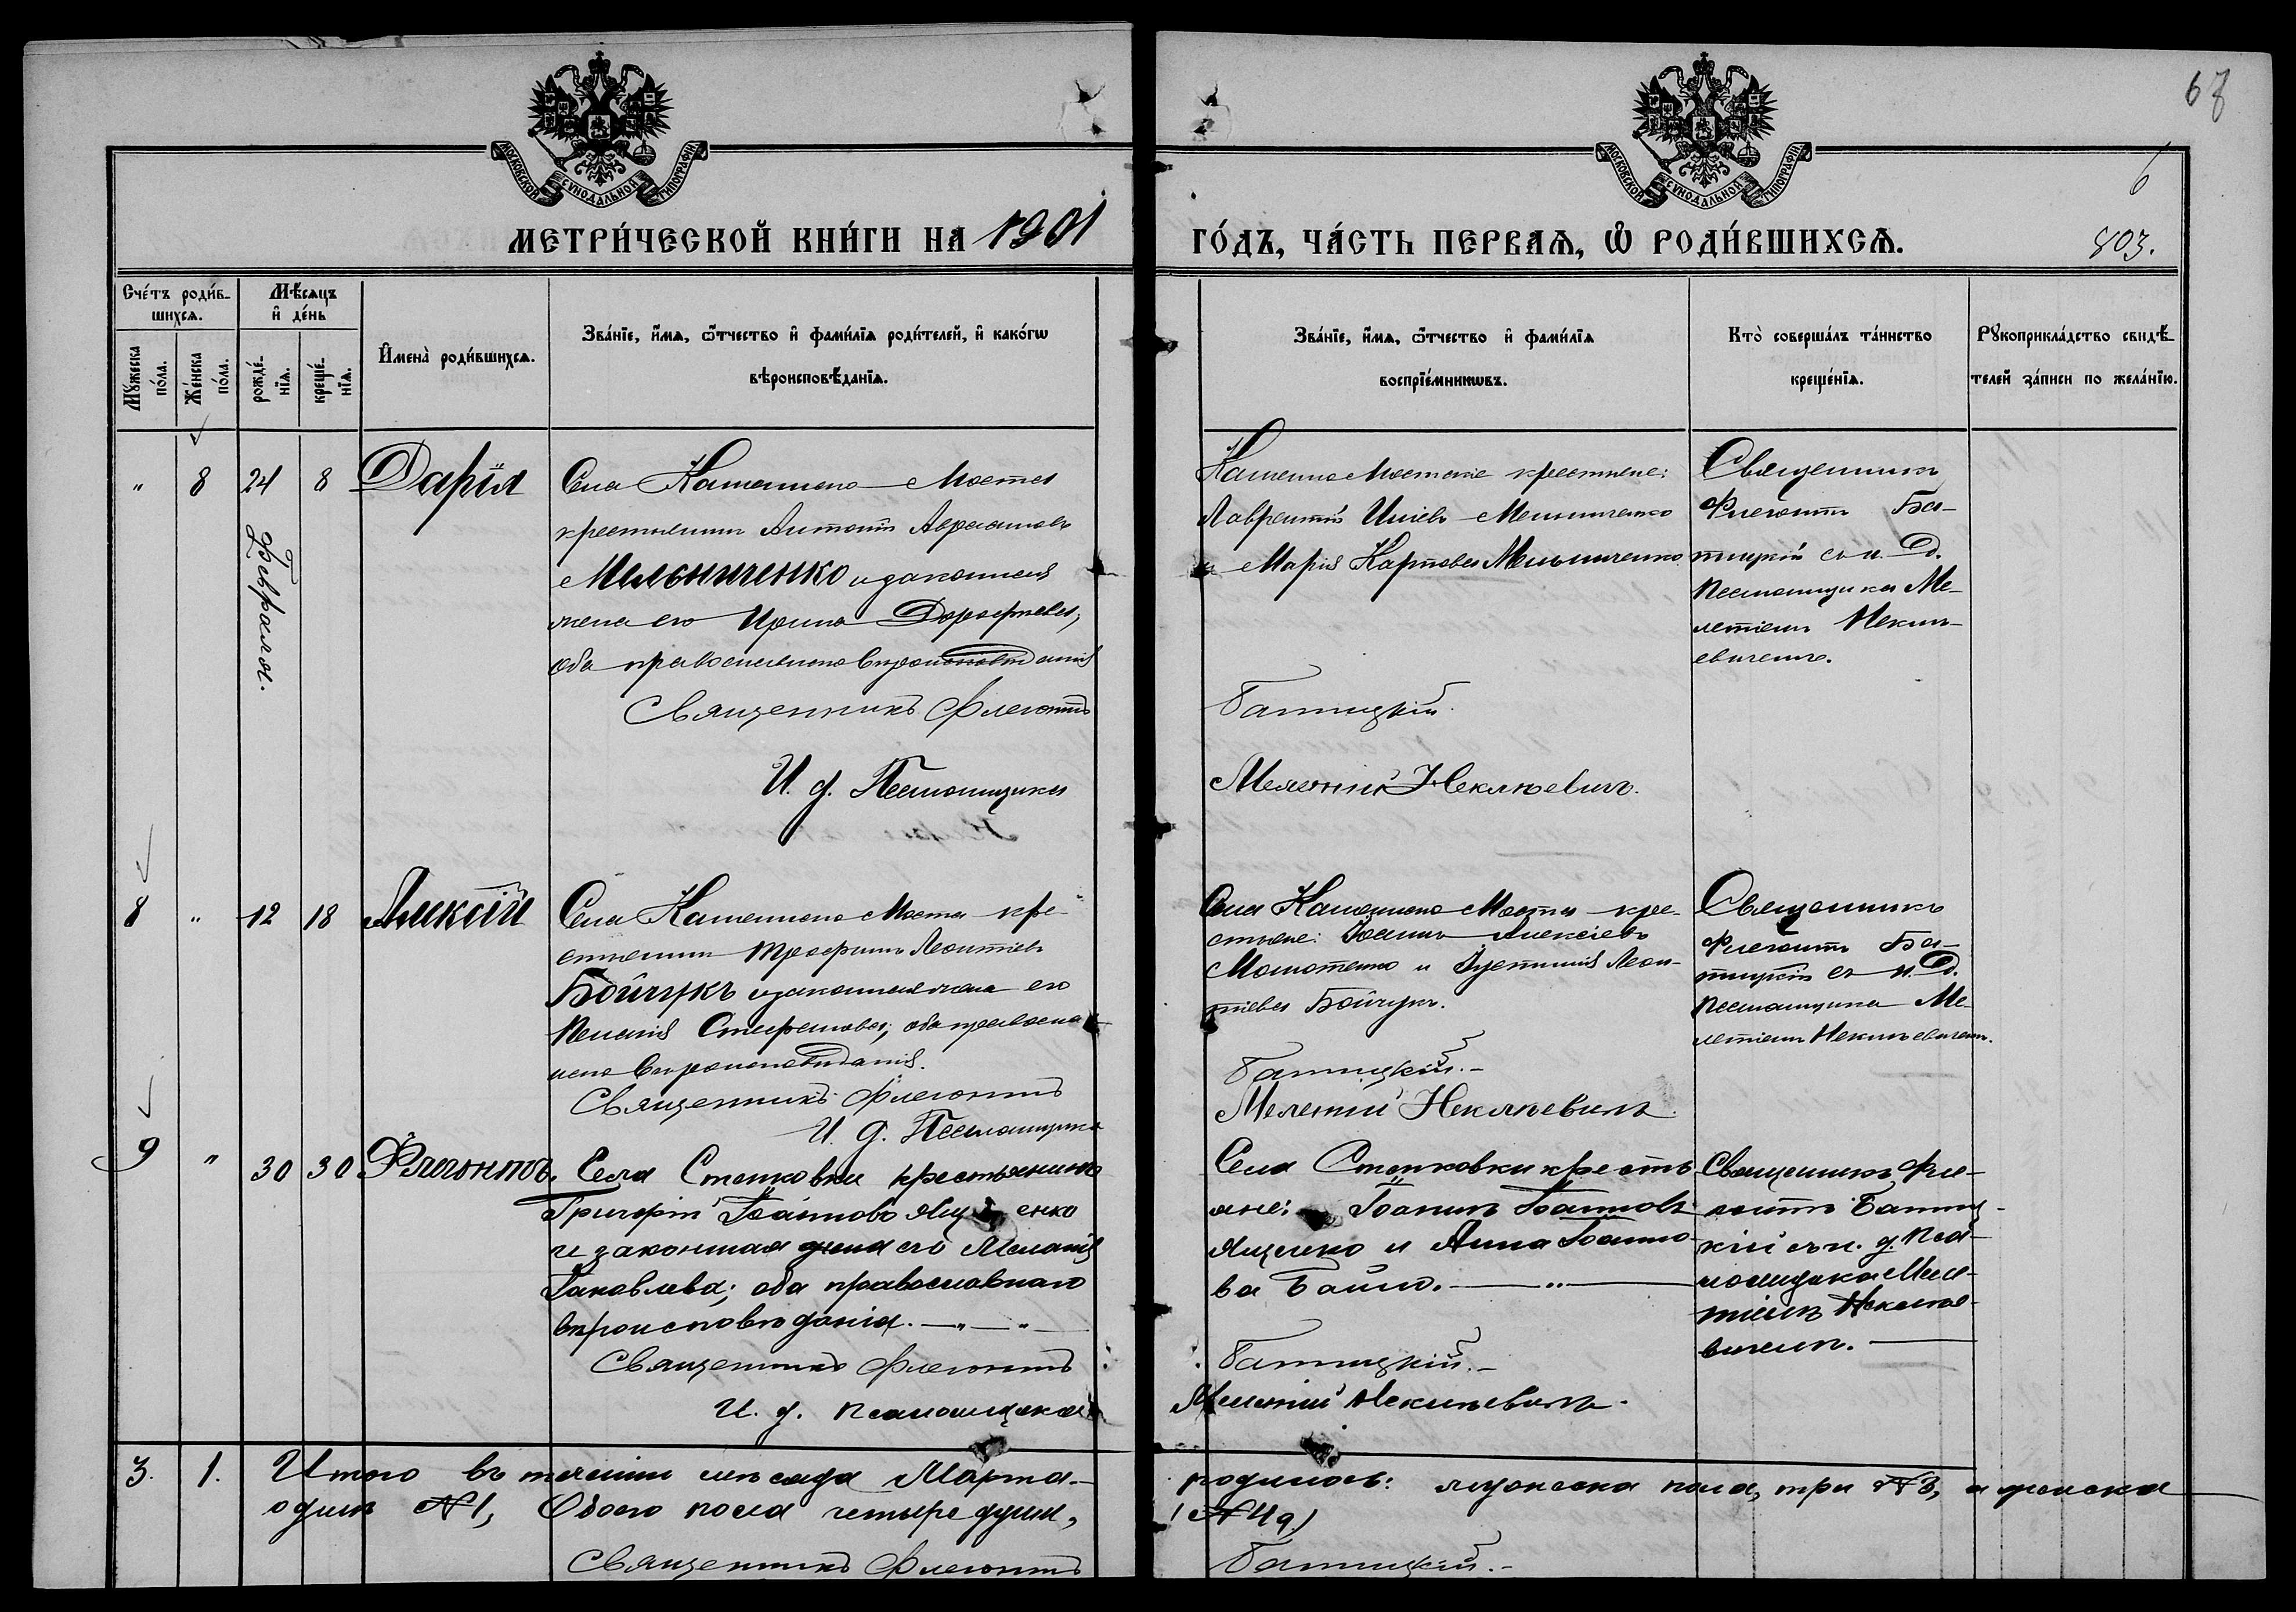 68
6
803.
МОСКОВСКОЙ СУНОДАЛЬНОЙ ТИПОГРАФІИ
МОСКОВСКОЙ СУНОДАЛЬНОЙ ТИПОГРАФІИ
МЕТРИ́ЧЕСКОЙ КНИ́ГИ НА 1901
ГО́ДЪ, ЧА́СТЬ ПЕРВАѦ, Ѡ҆ РОДИ́ВШИХСѦ.
Сче́тъ роди́в-
шихсѧ.
Мꙋжеска по́ла.
Же́нска по́ла.
Мѣ́сѧцъ
и҆ де́нь
рожде́-
нїѧ.
креще́-
нїѧ.
И҆мена̀ роди́вшихсѧ.
Зва́нїе, и҆́мѧ, ѻ҆́тчество и҆ фами́лїѧ роди́телей, и҆ како́гѡ
вѣроисповѣ́данїѧ.
Зва́нїе, и҆́мѧ, ѻ҆́тчество и҆ фами́лїѧ
воспрїе́мникѡвъ.
Кто̀ соверша́лъ та́инство
креще́нїѧ.
Рꙋкоприкла́дство свидѣ́-
телей за́писи по жела́нїю.
" 8 24 8 Дарія
Февраля.
Села Каменнаго Моста
крестьянинъ Антоній Авраамовъ
Мельниченко и законная
жена его Ирина Дорофеева,
оба православнаго вѣроисповѣданія
Священникъ Флегонтъ
И. д. Псаломщика
Каменно Мостскіе крестьяне:
Лаврентій Иліевъ Мельниченко
и Марія Карпова Мельниченко
Батицкій.
Мелетій Некляевичъ.
Священникъ
Флегонтъ Ба-
тицкій съ и. д.
псаломщика Ме-
летіемъ Некля-
евичемъ.
8 " 12 18 Алексій
Села Каменнаго Моста кре-
стьянинъ Трофимъ Леонтіевъ
Бойчукъ и законная жена его
Пелагія Стефанова; оба православ
наго вѣроисповѣданія.
Священникъ Флегонтъ
И. д. Псаломщика
Села Каменнаго Моста кре-
стьяне: Іоаннъ Алексіевъ
и Іустинія Леон-
тіева Бойчукъ.
Батицкій.-
Мелетій Некляевичъ.
Священникъ
Флегонтъ Ба-
тицкій съ и. д.
псаломщика Ме-
летіемъ Некляевичемъ.
9 " 30 30 Флегонтъ.
Села Степковки крестьянинъ
Григорій Іоанновъ Ященко
и законная жена его Меланія
Іаковлева; оба православнаго
вѣроисповѣданія. — " — "
Священникъ Флегонтъ
И. д. псаломщика
Села Степковки кресть
яне: Іоаннъ Іоанновъ
Ященко и Анна Іоанно-
ва — " —
Батицкій.-
Мелетій Некляевичъ.
Священникъ Фле-
гонтъ Батиц-
кій съ и. д. пса-
ломщика Меле-
тіемъ Некляе-
вичемъ. —
3. 1. Итого въ теченіи мѣсяца Марта-
родилось: мужеска пола, три №3, а женска
одинъ №1, Обоего пола четыре души,
(№4й.)
Священникъ Флегонтъ
Батицкій.-